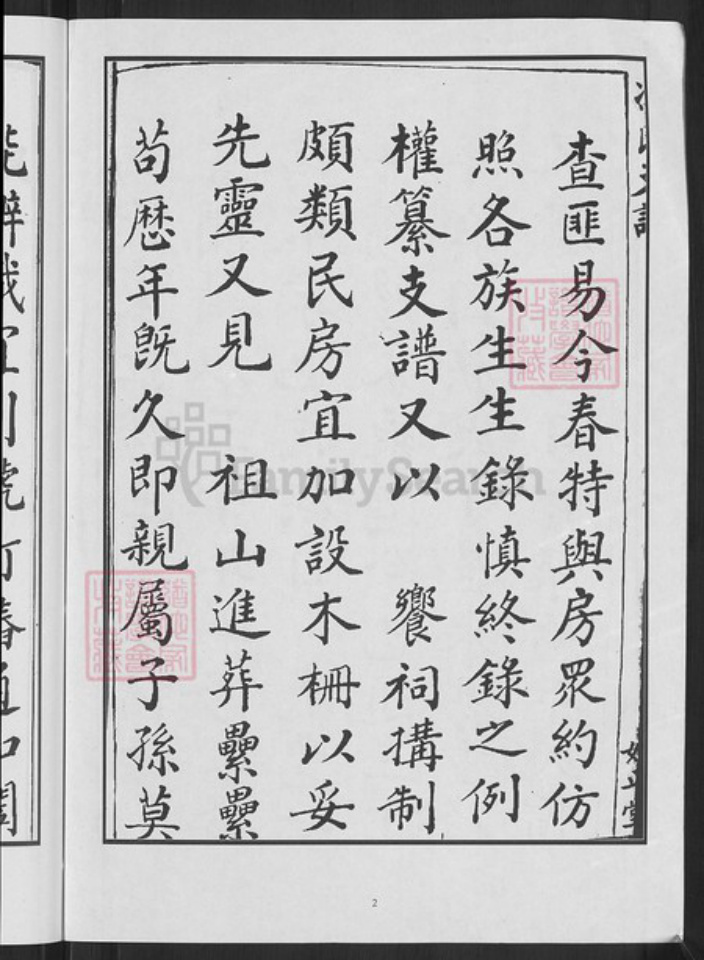 查匪易今春特與房眾約仿
照各族生生錄慎終錄之例
權纂支譜又以 饗祠搆制
頗類民房宜加設木柵以妥
先靈又見 祖山進葬纍纍
苟歷年既久即親屬子孫莫
FamilySearch
2